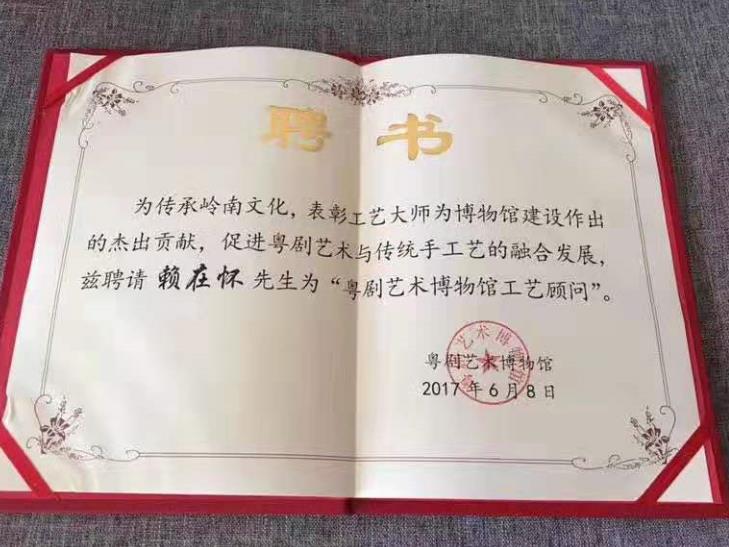 聘书
为传承岭南文化，表彰工艺大师为博物馆建设作出
的杰出贡献，促进粤剧艺术与传统手工艺的融合发展，
兹聘请 赖在怀 先生为“粤剧艺术博物馆工艺顾问”。
粤剧艺术博物馆
2017年6月8日
艺术博物馆